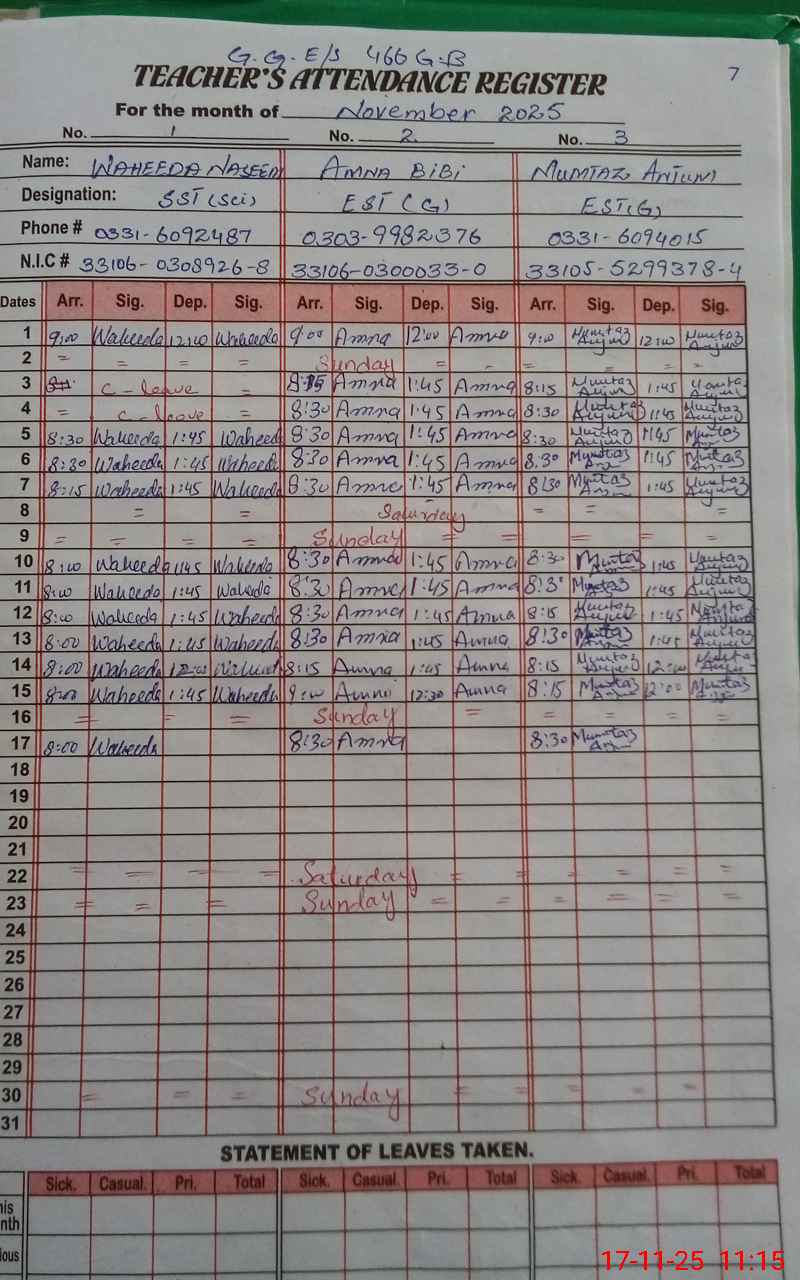 G.G.E/S 466 G.B
7
TEACHER'S ATTENDANCE REGISTER
For the month of November 2025
No. 1 No. 2. No. 3
Name: WAHEEDA NASEEM AMNA BiBi MUMTAZ ANJUM
Designation: SST (Sci) EST (G) EST(G)
Phone # 0331-6092487 0303-9982376 0331-6094015
N.I.C # 33106-0308926-8 33106-0300033-0 33105-5299378-4
Dates Arr. Sig. Dep. Sig. Arr. Sig. Dep. Sig. Arr. Sig. Dep. Sig.
1 9:00 Waheeda 12:00 Waheeda 9:00 Amna 12:00 Amna 9:00 Mumtaz Anjum 12:00 Mumtaz Anjum
2 = = = = Sunday = = = = = =
3 C-leave = 8:15 Amna 1:45 Amna 8:15 Mumtaz Anjum 1:45 Mumtaz Anjum
4 = C-leave = 8:30 Amna 1:45 Amna 8:30 Mumtaz Anjum 1:45 Mumtaz Anjum
5 8:30 Waheeda 1:45 Waheed 8:30 Amna 1:45 Amna 8:30 Mumtaz Anjum 1:45 Mumtaz Anjum
6 8:30 Waheeda 1:45 Waheeda 8:30 Amna 1:45 Amna 8:30 Mumtaz Anjum 1:45 Mumtaz Anjum
7 8:15 Waheeda 1:45 Waheeda 8:30 Amna 1:45 Amna 8:30 Mumtaz Anjum 1:45 Mumtaz Anjum
8 = = Saturday = = =
9 = = = = Sunday = = = = =
10 8:00 Waheeda 1:45 Waheeda 8:30 Amna 1:45 Amna 8:30 Mumtaz Anjum 1:45 Mumtaz Anjum
11 8:00 Waheeda 1:45 Waheeda 8:30 Amna 1:45 Amna 8:3' Mumtaz Anjum 1:45 Mumtaz Anjum
12 8:00 Waheeda 1:45 Waheeda 8:30 Amna 1:45 Amna 8:15 Mumtaz Anjum 1:45 Mumtaz Anjum
13 8:00 Waheeda 1:45 Waheeda 8:30 Amna 1:45 Amna 8:30 Mumtaz Anjum 1:45 Mumtaz Anjum
14 8:00 Waheeda 12:00 8:15 Amna 1:45 Amna 8:15 Mumtaz Anjum 12:00 Mumtaz Anjum
15 8:00 Waheeda 1:45 Waheeda 9:00 Amna 12:30 Amna 8:15 Mumtaz Anjum 12:00 Mumtaz Anjum
16 = = = Sunday = = = = =
17 8:00 Waheeda 8:30 Amna 8:30 Mumtaz Anjum
18
19
20
21
22 = = = = Saturday = = = = =
23 = = = Sunday = = = = = =
24
25
26
27
28
29
30 = = = Sunday = = = = =
31
STATEMENT OF LEAVES TAKEN.
Sick. Casual. Pri. Total Sick. Casual. Pri. Total Sick. Casual. Pri. Total
his
nth
ious
17-11-25 11:15